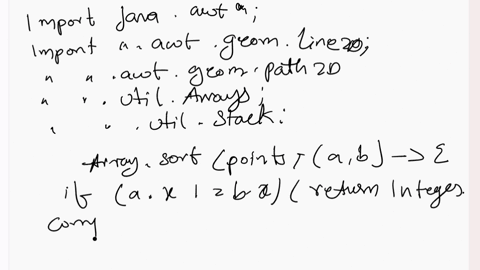 Import Java.awt *;
Import ".awt.geom.line2D;
" ".awt.geom.path2D
" ".util.Arrays;
" ".util.Stack:
Array.sort (points, (a,b) -> {
if (a.x != b.x) ( return Integer.
comp